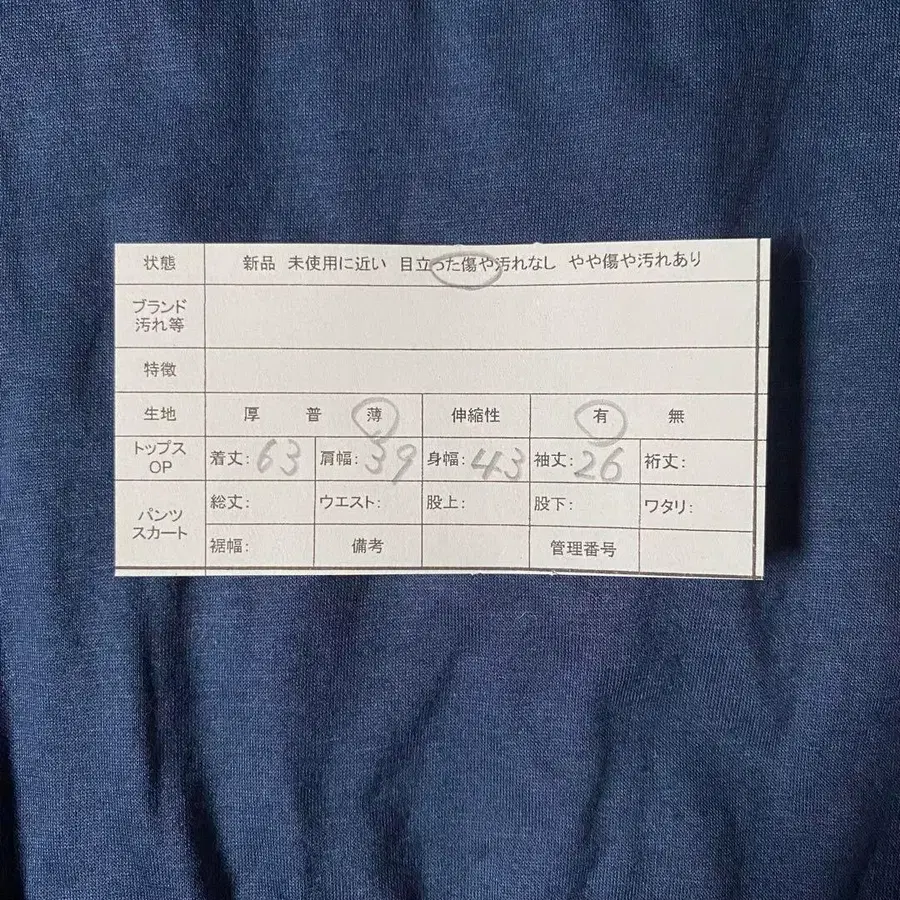 状態 新品 未使用に近い 目立った傷や汚れなし やや傷や汚れあり
ブランド
汚れ等
特徴
生地 厚 普 薄 伸縮性 有 無
トップス
OP
着丈:63 肩幅:39 身幅:43 袖丈:26 裄丈:
パンツ
スカート
総丈: ウエスト: 股上: 股下: ワタリ:
裾幅: 備考 管理番号